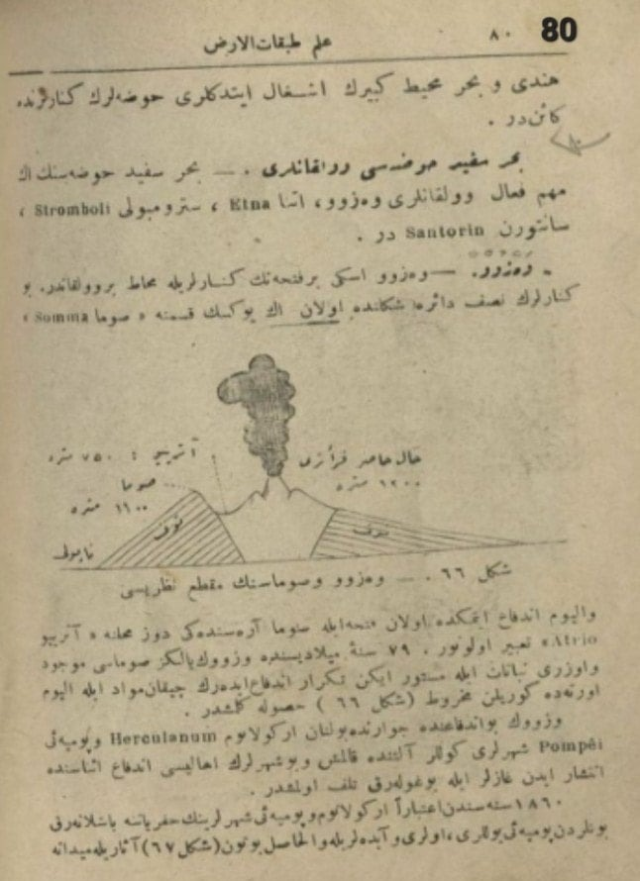 علم طبقات‌الارض ٨٠ 80
هندی و بحر محیط کبیرك اشغال ایتدکلری حوضه‌لرك کنارلرنده
کائن‌در .
بحر سفید حوضه‌سی وولقانلری . — بحر سفید حوضه‌سنك اك
مهم فعال وولقانلری وه‌زوو ، اتنا Etna ، سترومبولی Stromboli ،
سانتورن Santorin در .
وه‌زوو . — وه‌زوو اسکی برفتحه‌نك کنارلریله محاط بروولقاندر. بو
کنارلرك نصف دائره شکلنده اولان اك یوکسك قسمنه « صوما Somma »
حال حاضر
١٢٠٠ متره
آتریو : ٧٥٠ متره
صوما
١١٠٠ متره
توف
توف
ناپولی
شکل ٦٦ . — وه‌زوو وصوماسنك مقطع نظریسی
والیوم اندفاع ایتمکده اولان فتحه‌ایله صوما آره‌سنده‌کی دوز محله « آتریو
Atrio » تعبیر اولونور . ٧٩ سنهٔ میلادیسنده وزووك یالکز صوماسی موجود
واوزری نباتات ایله مستور ایکن تکرار اندفاع ایده‌رك چیقان مواد ایله الیوم
اورته‌ده کوریلن مخروط (شکل ٦٦) حصوله کلمشدر .
وزووك بواندفاعنده جوارنده‌بولنان ارکولانوم Herculanum وپومپه‌ئی
Pompéi شهرلری کوللر آلتنده قالمش وبوشهرلرك اهالیسی اندفاع اثناسنده
انتشار ایدن غازلر ایله بوغوله‌رق تلف اولمشدر .
١٨٦٠ سنه‌سندن اعتباراً ارکولانوم‌وپومپه‌ئی شهرلرینك حفریاتنه باشلانه‌رق
بونلردن پومپه‌ئی یوللری ، اولری و آبده‌لریله والحاصل بوتون (شکل ٦٧) آثاریله میدانه